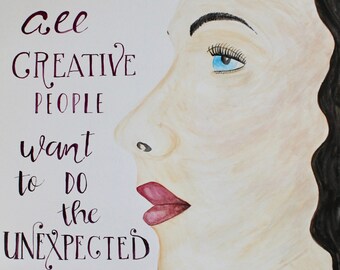 all
CREATIVE
PEOPLE
want
to DO
the
UNEXPECTED